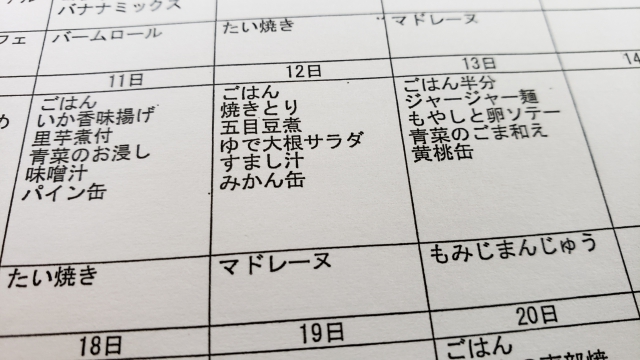 バナナミックス
フェ
バームロール
たい焼き
マドレーヌ
11日
12日
13日
14
ごはん
いか香味揚げ
里芋煮付
青菜のお浸し
味噌汁
パイン缶
ごはん
焼きとり
五目豆煮
ゆで大根サラダ
すまし汁
みかん缶
ごはん半分
ジャージャー麺
もやしと卵ソテー
青菜のごま和え
黄桃缶
め
たい焼き
マドレーヌ
もみじまんじゅう
18日
19日
20日
ごはん